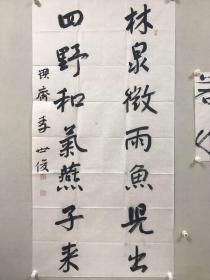 林泉微雨魚児出
四野和氣燕子来
琪齋李世俊